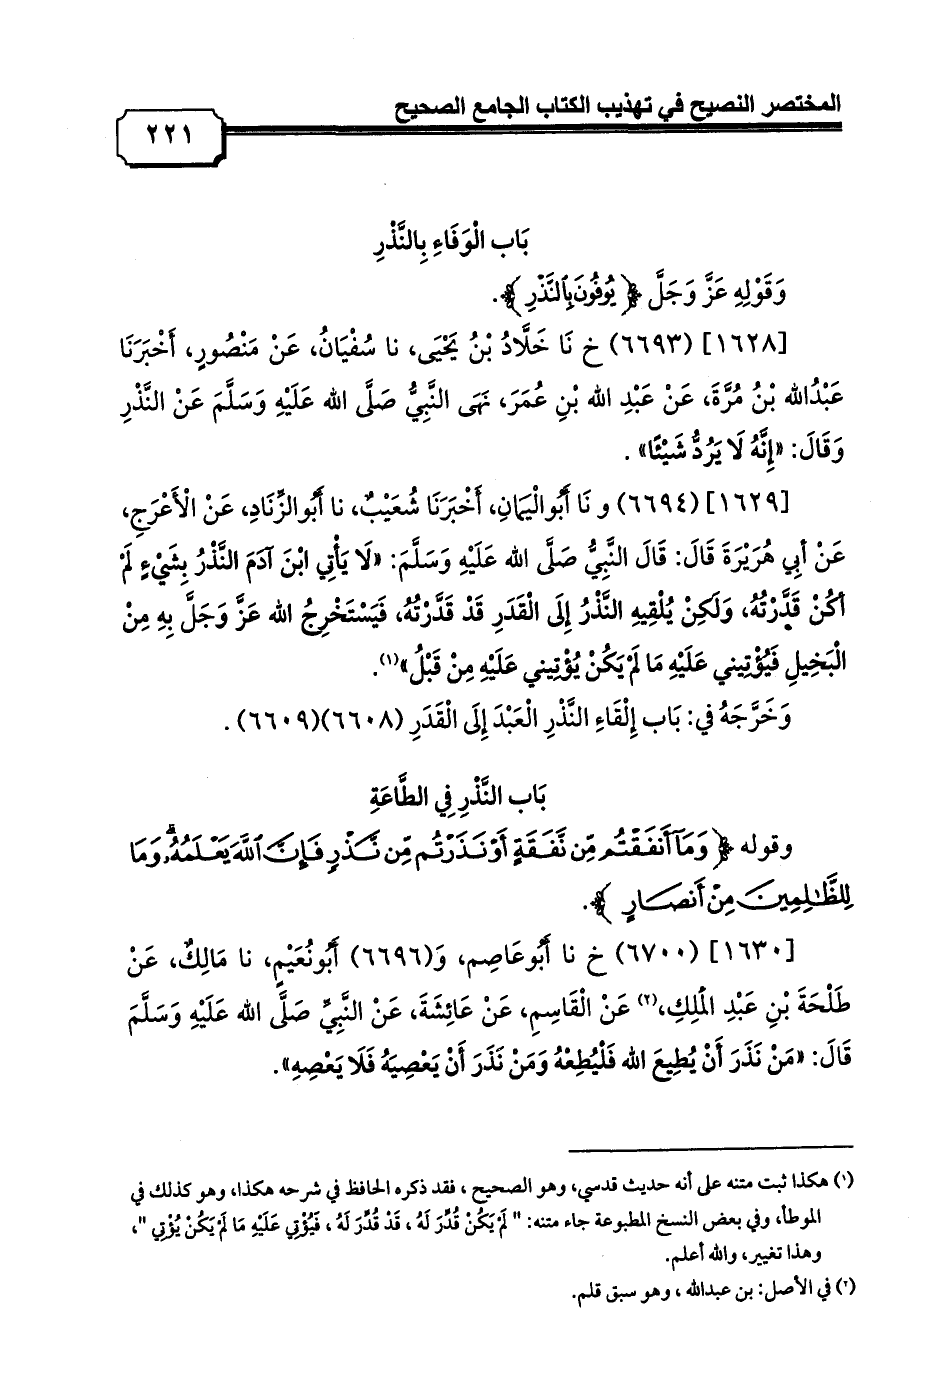 المختصر النصيح في تهذيب الكتاب الجامع الصحيح
٢٢١
بَاب الْوَفَاءِ بِالنَّذْرِ
وَقَوْلِهِ عَزَّ وَجَلَّ ﴿يُوفُونَ بِالنَّذْرِ﴾.
[١٦٢٨] (٦٦٩٣) خ نَا خَلَّادُ بْنُ يَحْيَى، نا سُفْيَانُ، عَنْ مَنْصُورٍ، أَخْبَرَنَا
عَبْدُالله بْنُ مُرَّةَ، عَنْ عَبْدِ الله بْنِ عُمَرَ، نَهَى النَّبِيُّ صَلَّى الله عَلَيْهِ وَسَلَّمَ عَنْ النَّذْرِ
وَقَالَ: «إِنَّهُ لَا يَرُدُّ شَيْئًا» .
[١٦٢٩] (٦٦٩٤) و نَا أَبُو الْيَمَانِ، أَخْبَرَنَا شُعَيْبٌ، نا أَبُو الزِّنَادِ، عَنْ الْأَعْرَجِ،
عَنْ أبِي هُرَيْرَةَ قَالَ: قَالَ النَّبِيُّ صَلَّى الله عَلَيْهِ وَسَلَّمَ: «لَا يَأْتِي ابْنَ آدَمَ النَّذْرُ بِشَيْءٍ لَمْ
أكُنْ قَدَّرْتُهُ، وَلَكِنْ يُلْقِيهِ النَّذْرُ إِلَى الْقَدَرِ قَدْ قَدَّرْتُهُ، فَيَسْتَخْرِجُ الله عَزَّ وَجَلَّ بِهِ مِنْ
الْبَخِيلِ فَيُؤْتِينِي عَلَيْهِ مَا لَمْ يَكُنْ يُؤْتِينِي عَلَيْهِ مِنْ قَبْلُ»(١).
وَخَرَّجَهُ في: بَاب إِلْقَاءِ النَّذْرِ الْعَبْدَ إِلَى الْقَدَرِ (٦٦٠٨)(٦٦٠٩) .
بَاب النَّذْرِ فِي الطَّاعَةِ
وقوله ﴿وَمَآ أَنفَقْتُم مِّن نَّفَقَةٍ أَوْ نَذَرْتُم مِّن نَّذْرٍ فَإِنَّ ٱللَّهَ يَعْلَمُهُۥ ۗ وَمَا
لِلظَّٰلِمِينَ مِنْ أَنصَارٍ﴾.
[١٦٣٠] (٦٧٠٠) خ نا أَبُو عَاصِم، وَ(٦٦٩٦) أَبُو نُعَيْمٍ، نا مَالِكٌ، عَنْ
طَلْحَةَ بْنِ عَبْدِ الْمَلِكِ،(٢) عَنْ الْقَاسِمِ، عَنْ عَائِشَةَ، عَنْ النَّبِيِّ صَلَّى الله عَلَيْهِ وَسَلَّمَ
قَالَ: «مَنْ نَذَرَ أَنْ يُطِيعَ الله فَلْيُطِعْهُ وَمَنْ نَذَرَ أَنْ يَعْصِيَهُ فَلَا يَعْصِهِ».
(١) هكذا ثبت متنه على أنه حديث قدسي، وهو الصحيح ، فقد ذكره الحافظ في شرحه هكذا، وهو كذلك في
الموطأ، وفي بعض النسخ المطبوعة جاء متنه: " لَمْ يَكُنْ قُدِّرَ لَهُ ، قَدْ قُدِّرَ لَهُ ، فَيُؤْتِي عَلَيْهِ مَا لَمْ يَكُنْ يُؤْتِي "،
وهذا تغيير، والله أعلم.
(٢) في الأصل: بن عبدالله ، وهو سبق قلم.